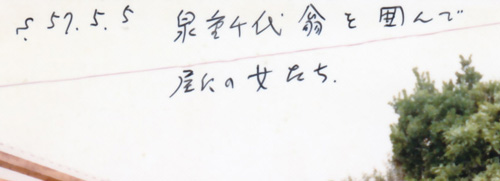 S. 57. 5. 5 泉重千代翁を囲んで
屋仁の女たち.